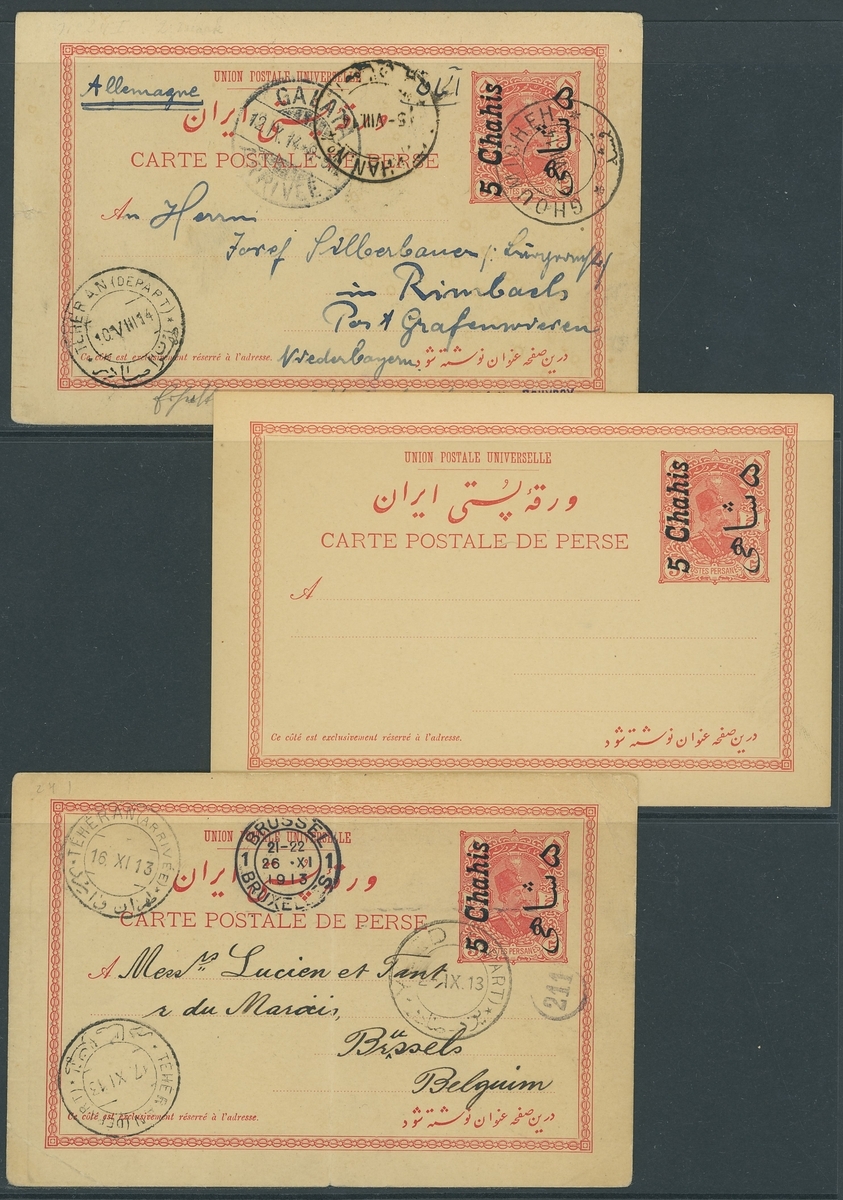 Allemagne
UNION POSTALE UNIVERSELLE
ایران
CARTE POSTALE DE PERSE
5 Chahis
۵ شاهی
GALATI
12 IX. 14
TRIVEE
5-VIII
HAN
GHOU
CHEH
An Herrn
Josef Silberbauer
in Rimbach
Post Grafenwiesen
Niederbayern
TEHERAN (DEPART)
10.VIII 14
Ce côté est exclusivement réservé à l'adresse.
درین صفحه عنوان نوشته شود
UNION POSTALE UNIVERSELLE
ورقهٔ پُستی ایران
CARTE POSTALE DE PERSE
5 Chahis
۵ شاهی
POSTES PERSANES
A
Ce côté est exclusivement réservé à l'adresse.
درین صفحه عنوان نوشته شود
TEHERAN (ARRIVÉE)
16. XI 13
UNION POSTALE UNIVERSELLE
BRUSSEL
1 21-22 1
26 XI
1913
BRUXELLES
ایران
CARTE POSTALE DE PERSE
5 Chahis
۵ شاهی
POSTES PERSANES
A Messrs Lucien et
r du Marais,
Brussels
Belguim
IX.13
211
TEHERAN (DEPART)
17. XI 13
Ce côté est exclusivement réservé à l'adresse.
درین صفحه عنوان نوشته شود